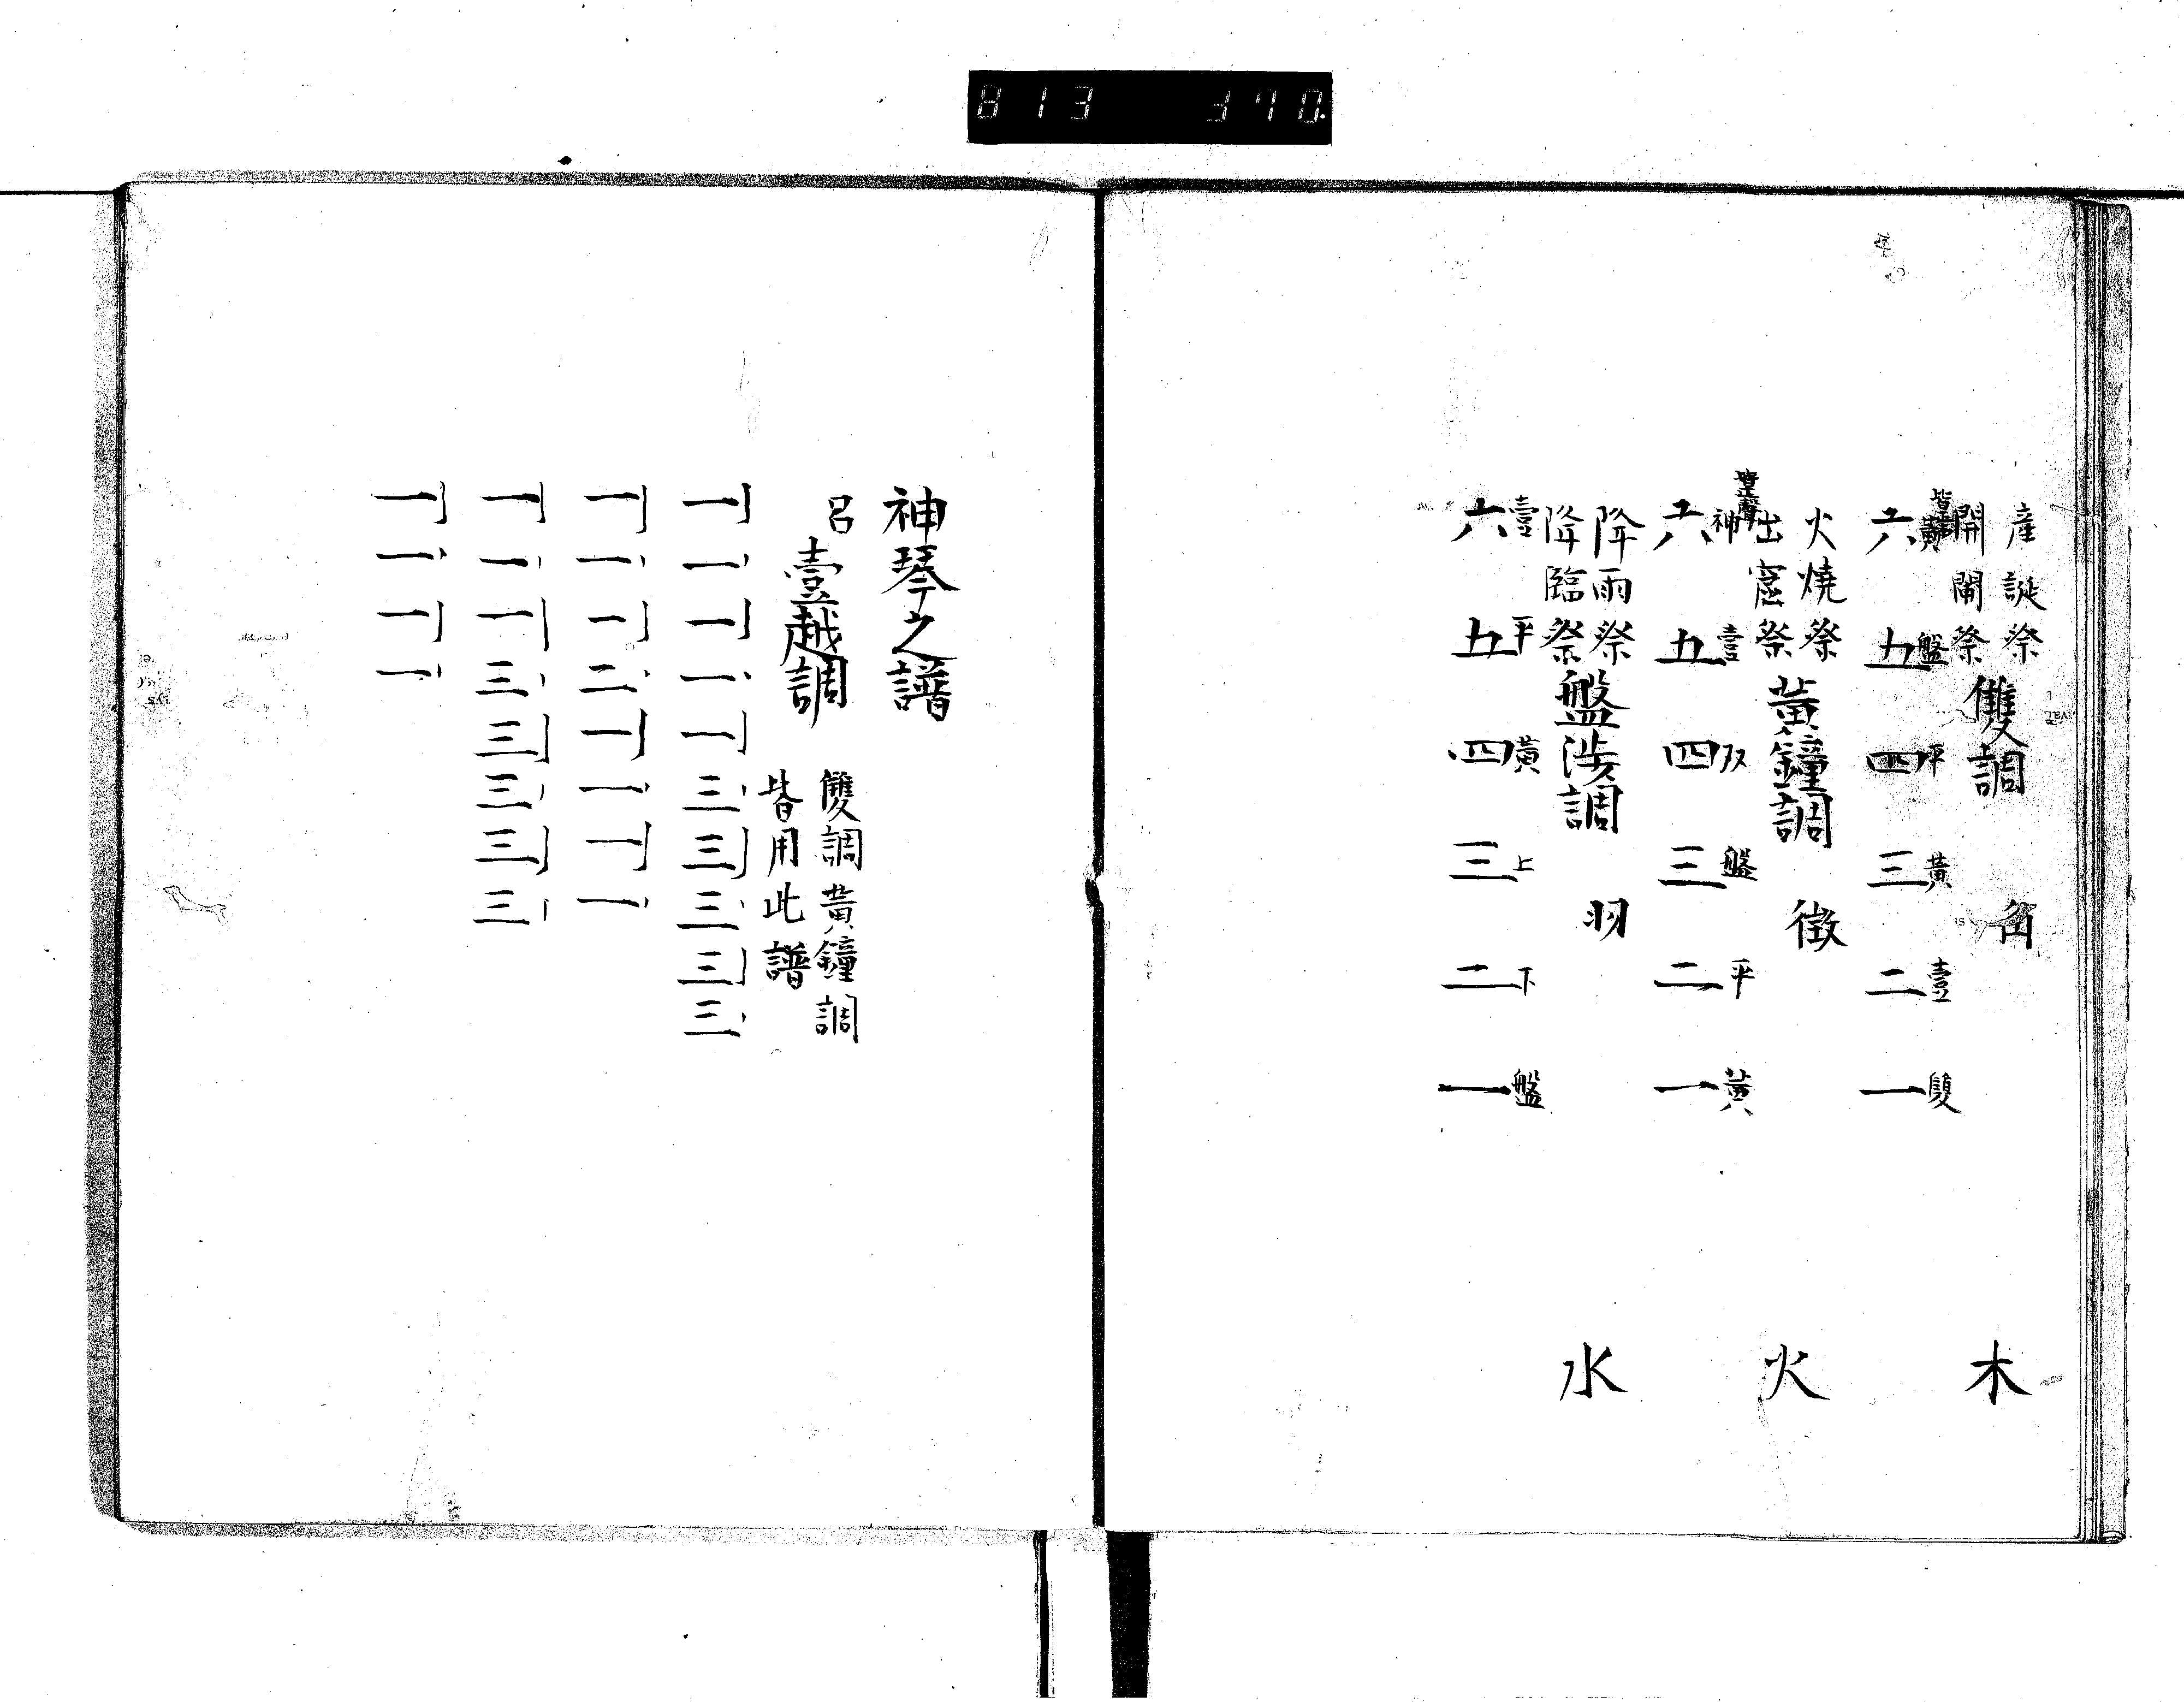 産誕祭
開閘祭
雙調
角
木
六 五 四 三 二 一
盤 平 黃 壹 雙
火燒祭
出窟祭
黃鐘調
徴
火
六 五 四 三 二 一
神 壹 双 盤 平 黃
降雨祭
降臨祭
盤涉調
羽
水
六 五 四 三 二 一
壹 平 黃 上 下 盤
神琴之譜
呂
壹越調
雙調黃鐘調
皆用此譜
一 一 一 一 一 三 三 三 三 三
一 一 一 二 一 一 一 一
一 一 一 三 三 三 三 三
一 一 一 一